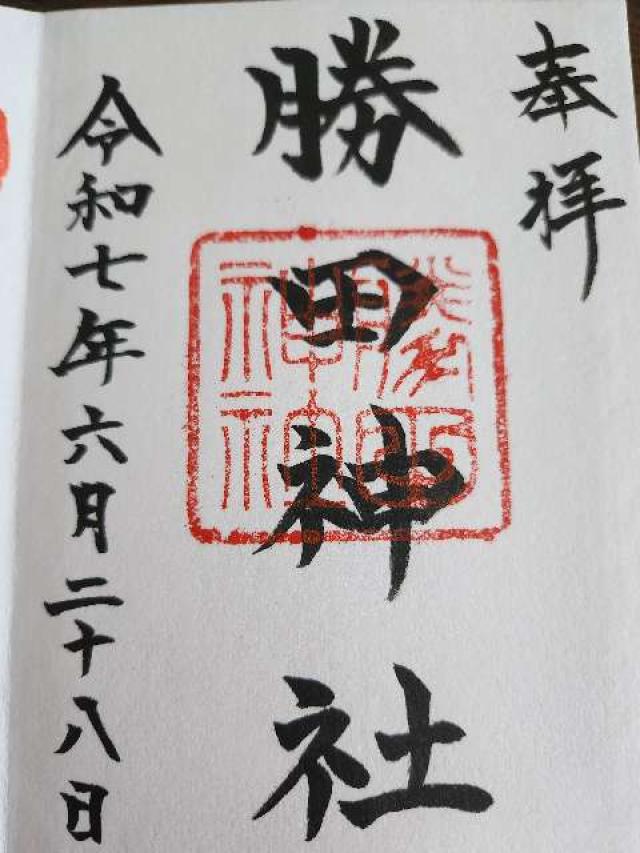 奉拝
勝田神社
勝田神社
令和七年六月二十八日